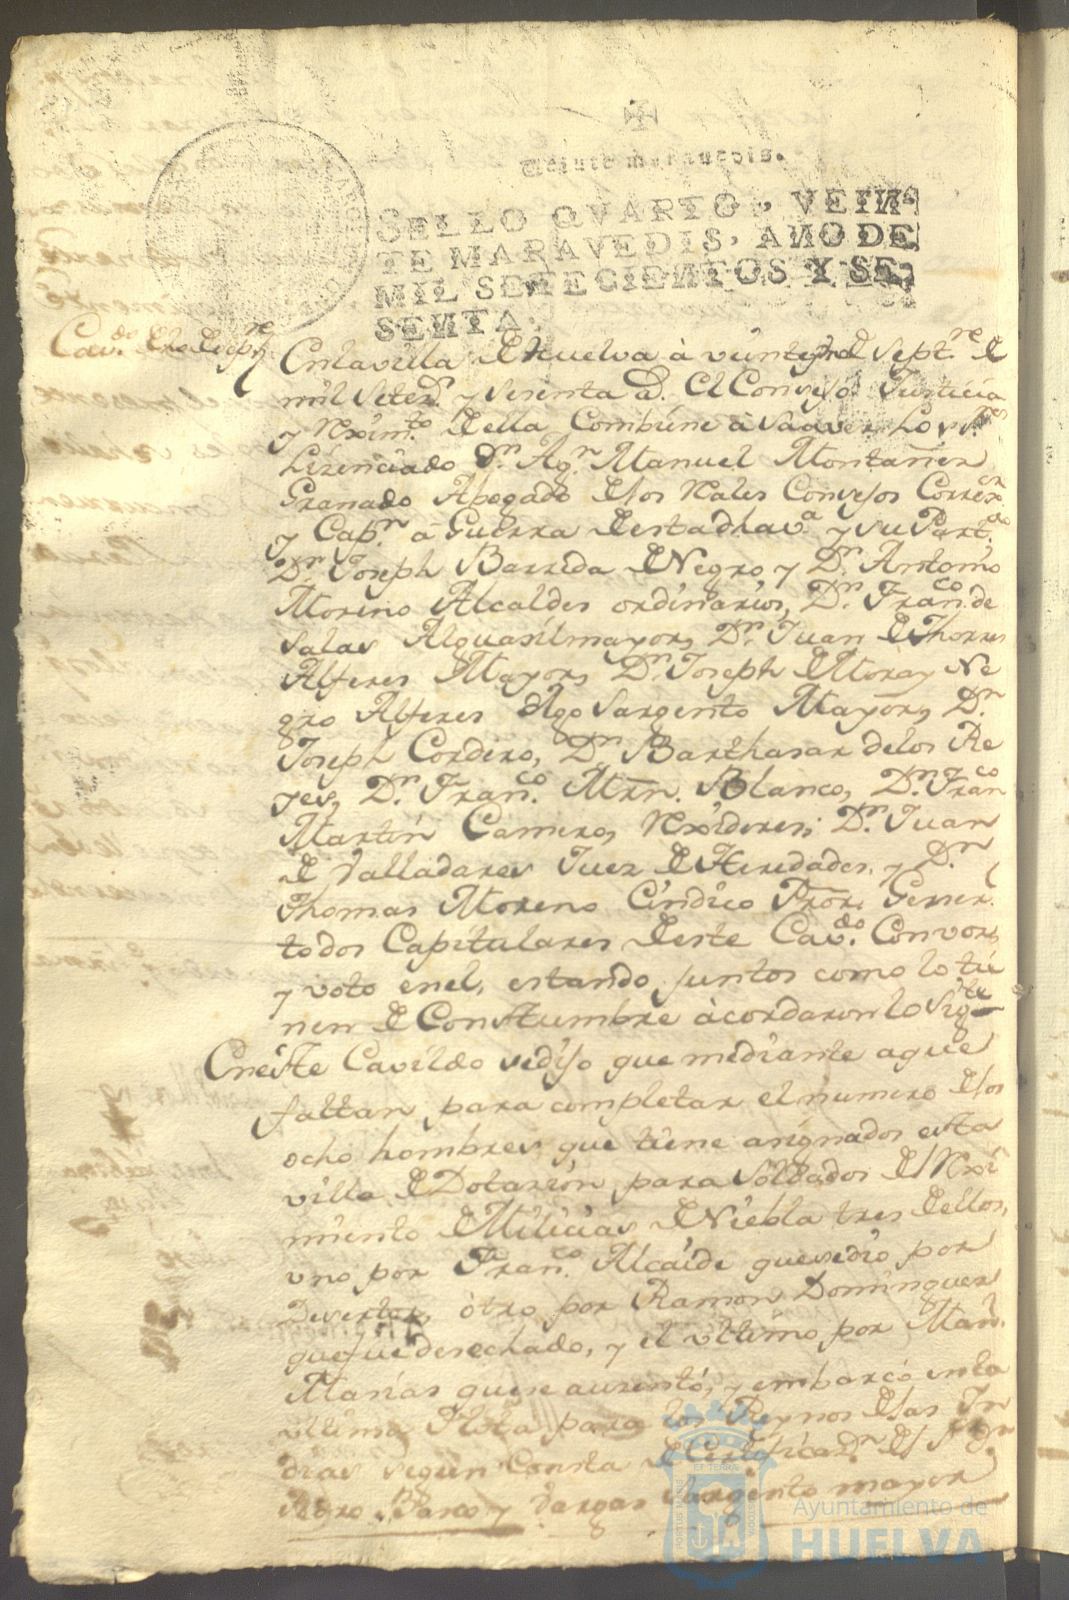 Veinte maravedis.
SELLO QVARTO, VEIN-
TE MARAVEDIS, AÑO DE
MIL SETECIENTOS Y SE-
SENTA.
Cav.do
Enlavilla de Huelva à veinte de Sept.re de
mil Setez.s y sesenta a.s El Consejo Justicia
y Rexim.to de ella Combiene à Saver Los S.res
Lizenciado D.n Ag.n Manuel Montañer
Granado Abogado de los Rales Consejos Correx.or
y Cap.n à Guerra de esta dha v.a y su Part.do
D.n Joseph Barreda de Negro y D.n Antonio
Moreno Alcaldes ordinarios, D.n Fran.co de
Salas Alguasil mayor, D.n Juan de Thorres
Alferes Mayor, D.n Joseph de Mora y Ne
gro Alferes Sargento Mayor, D.n
Joseph Cordero, D.n Barthasar de los Re
yes, D.n Fran.co Mrn. Blanco, D.n Fran.co
Martín Camero, Rexidores; D.n Juan
de Valladares Juez de Heredades, y D.n
Thomas Moreno Cindico Pror. Gener.l
todos Capitulares de este Cav.do Convos,
y voto enel, estando juntos como lo tie
nen de Constumbre àcordaron lo Sig.te
Eneste Cavildo sedijo que mediante aque
faltan para completar el numero de los
ocho hombres que tiene asignados esta
villa de Dotazion para Soldados del Rexi
miento de Milicias de Niebla tres de ellos,
vno por Fran.co Alcaide que sedio por
Desertor, otro por Ramon Dominguez
que fue desechado, y el vltimo por Man.l
Masias que se ausentó, y embarcó enla
vltima Flota para los Reynos de las In
dias segun Consta de Certificaz.n del S.r D.n
Pedro Ponce y Vargas Sargento mayor
Ayuntamiento de
HUELVA